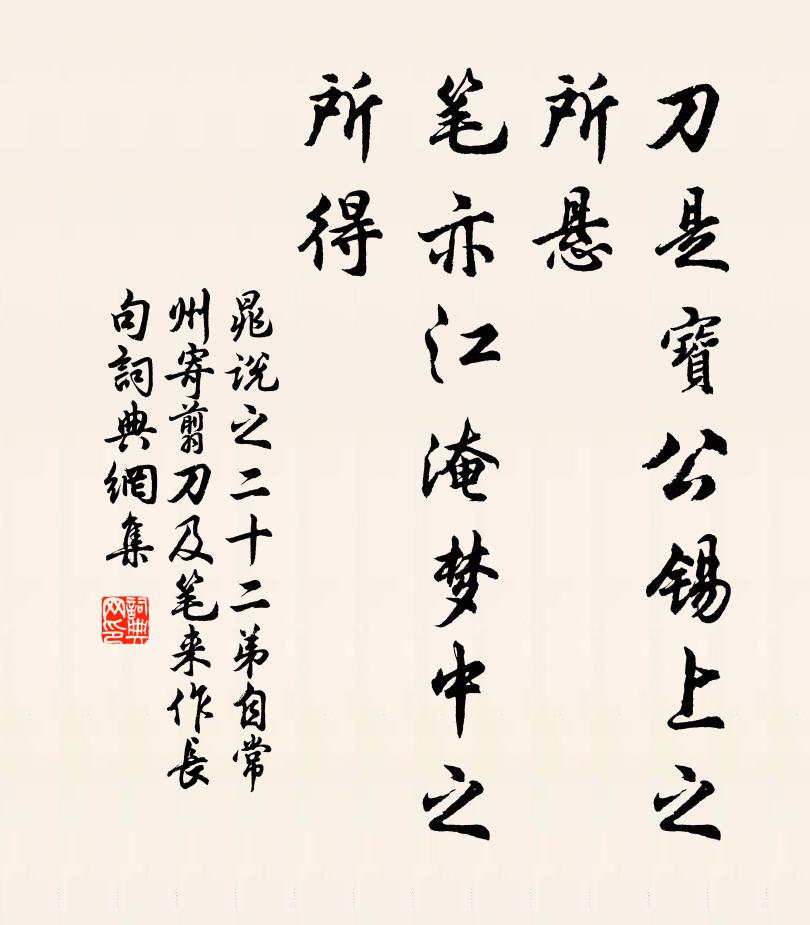 刀是寶公锡上之
所悬
笔亦江淹梦中之
所得
晁说之二十二弟自常
州寄剪刀及笔来作長
句詞典網集
詞典
网印